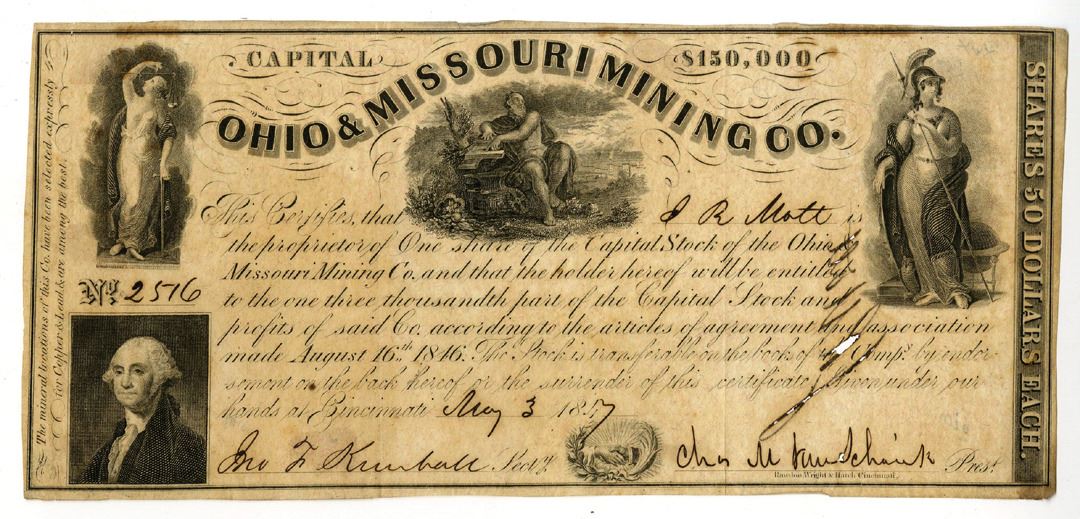 CAPITAL $150,000
OHIO & MISSOURI MINING CO.
This Certifies, that J R Mott is
the proprietor of One share of the Capital Stock of the Ohio &
Missouri Mining Co. and that the holder hereof will be entitled
to the one three thousandth part of the Capital Stock and
profits of said Co. according to the articles of agreement and association
made August 16th 1846. The Stock is transferable on the books of the Compy. by endor
sement on the back hereof or the surrender of this certificate. Given under our
hands at Cincinnati May 3 1847
No. 2516
Jno F Kimball Secty.
Chas M Van Schaick Prest.
Rawdon, Wright & Hatch, Cincinnati.
The mineral locations of this Co. have been selected expressly
for Copper & Lead, & are among the best.
SHARES 50 DOLLARS EACH.